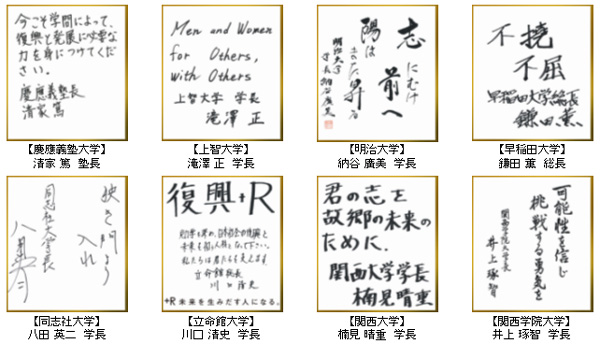 今こそ学問によって、
復興と発展に必要な
力を身につけてくだ
さい。
慶應義塾長
清家篤
【慶應義塾大学】
清家 篤 塾長
Men and Women
for Others,
with Others
上智大学 学長
滝澤 正
【上智大学】
滝澤 正 学長
志にむけ前へ
陽はまた昇る
明治大学
学長納谷廣美
【明治大学】
納谷 廣美 学長
不撓
不屈
早稲田大学総長
鎌田薫
【早稲田大学】
鎌田 薫 総長
狭き門より
入れ
同志社大学長
八田英二
【同志社大学】
八田 英二 学長
復興+R
私たちは君たちを支えます
立命館総長
川口清史
+R 未来を生みだす人になる。
【立命館大学】
川口 清史 学長
君の志を
故郷の未来の
ために.
関西大学学長
楠見晴重
【関西大学】
楠見 晴重 学長
可能性を信じ
挑戦する勇気を
関西学院大学学長
井上琢智
【関西学院大学】
井上 琢智 学長